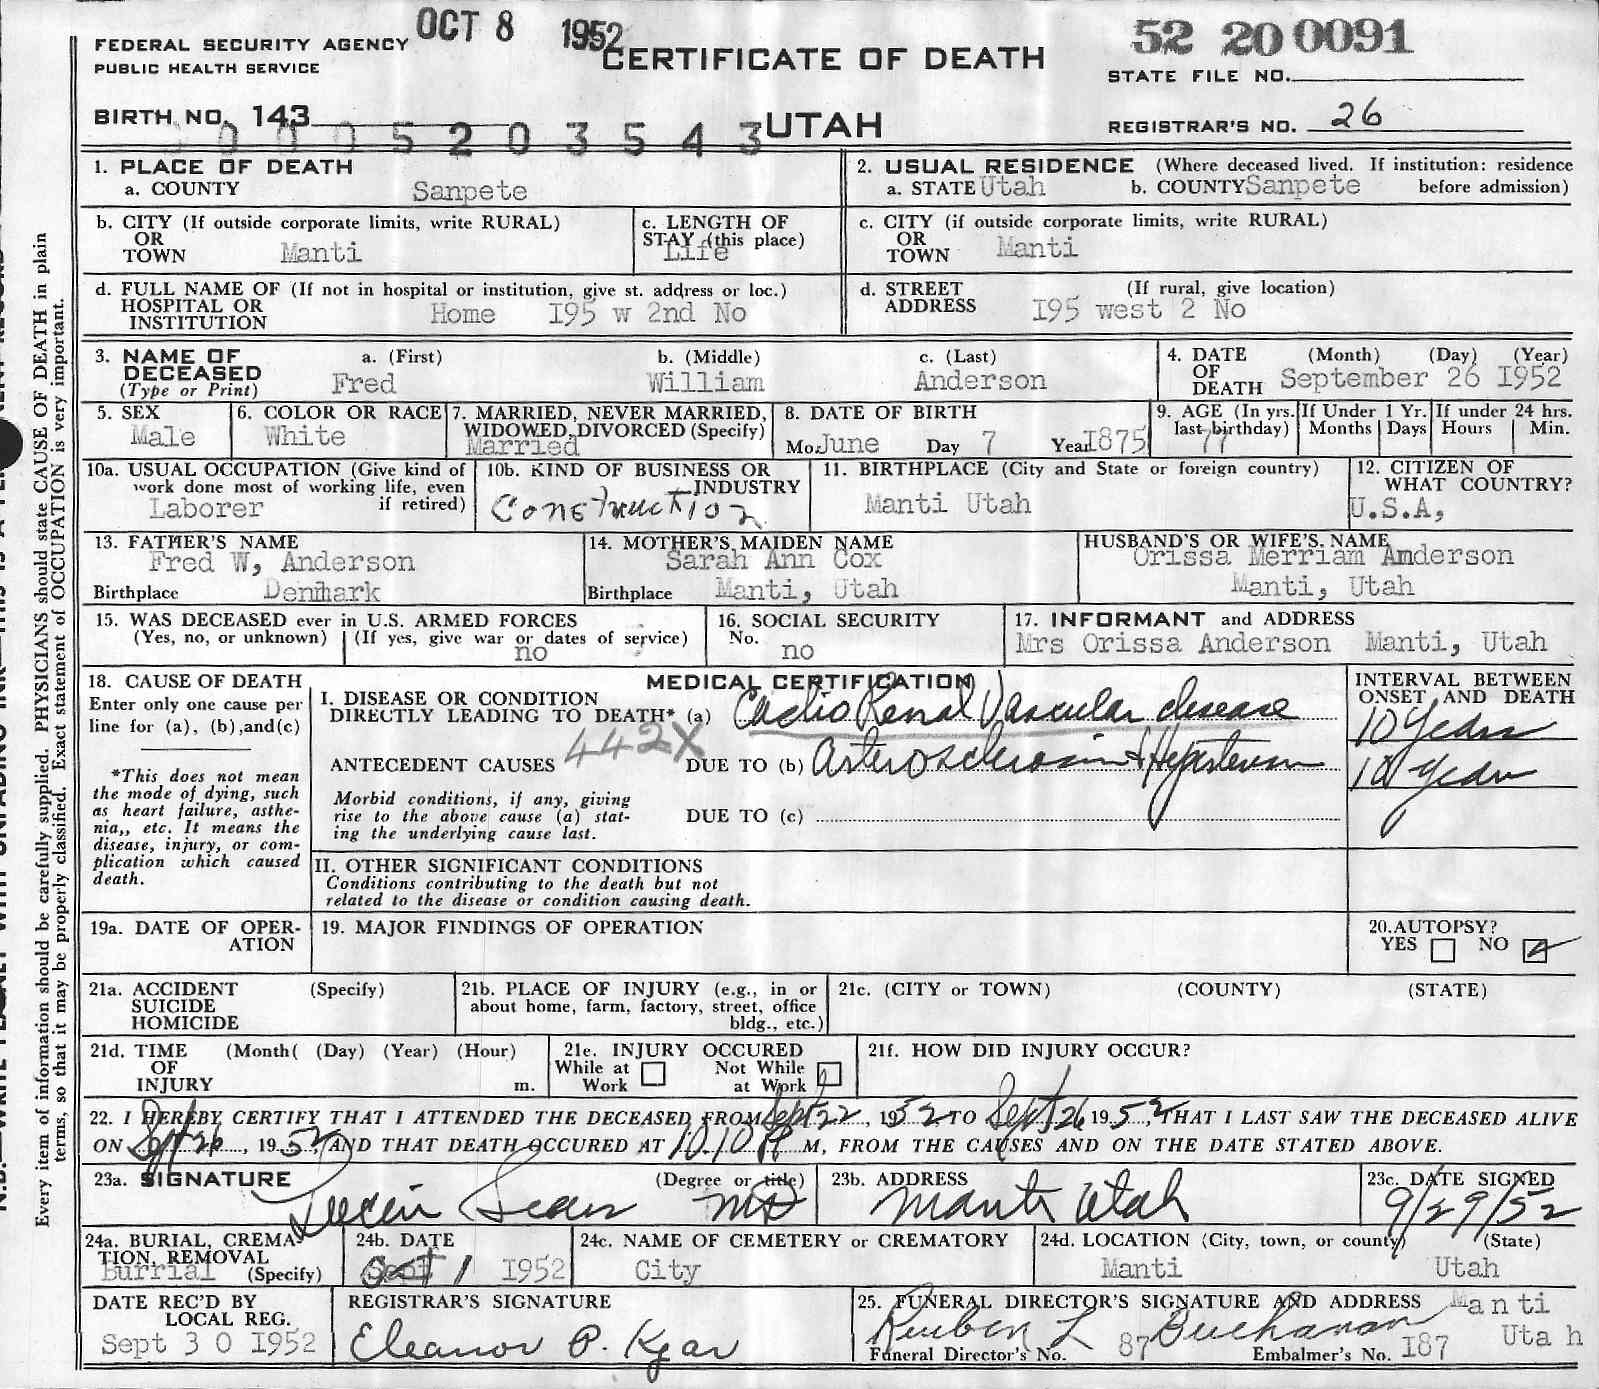 OCT 8 1952
52 20 0091
FEDERAL SECURITY AGENCY
PUBLIC HEALTH SERVICE
CERTIFICATE OF DEATH
STATE FILE NO.
BIRTH NO. 143
0005203543
UTAH
REGISTRAR'S NO. 26
1. PLACE OF DEATH
a. COUNTY Sanpete
2. USUAL RESIDENCE (Where deceased lived. If institution: residence before admission)
a. STATE Utah b. COUNTY Sanpete
b. CITY (If outside corporate limits, write RURAL)
OR
TOWN Manti
c. LENGTH OF
STAY (this place)
Life
c. CITY (if outside corporate limits, write RURAL)
OR
TOWN Manti
d. FULL NAME OF (If not in hospital or institution, give st. address or loc.)
HOSPITAL OR
INSTITUTION Home I95 w 2nd No
d. STREET (If rural, give location)
ADDRESS I95 west 2 No
3. NAME OF
DECEASED
(Type or Print)
a. (First) Fred
b. (Middle) William
c. (Last) Anderson
4. DATE OF DEATH (Month) (Day) (Year)
September 26 I952
5. SEX
Male
6. COLOR OR RACE
White
7. MARRIED, NEVER MARRIED,
WIDOWED, DIVORCED (Specify)
Married
8. DATE OF BIRTH
Mo. June Day 7 Year I875
9. AGE (In yrs. last birthday) 77
If Under 1 Yr. Months Days
If under 24 hrs. Hours Min.
10a. USUAL OCCUPATION (Give kind of
work done most of working life, even
if retired)
Laborer
10b. KIND OF BUSINESS OR
INDUSTRY
Construction
11. BIRTHPLACE (City and State or foreign country)
Manti Utah
12. CITIZEN OF
WHAT COUNTRY?
U.S.A,
13. FATHER'S NAME
Fred W, Anderson
Birthplace Denmark
14. MOTHER'S MAIDEN NAME
Sarah Ann Cox
Birthplace Manti, Utah
HUSBAND'S OR WIFE'S NAME
Orissa Merriam Anderson
Manti, Utah
15. WAS DECEASED ever in U.S. ARMED FORCES
(Yes, no, or unknown) (If yes, give war or dates of service)
no
16. SOCIAL SECURITY
No.
no
17. INFORMANT and ADDRESS
Mrs Orissa Anderson Manti, Utah
18. CAUSE OF DEATH
Enter only one cause per
line for (a), (b), and (c)
*This does not mean
the mode of dying, such
as heart failure, asthe-
nia,, etc. It means the
disease, injury, or com-
plication which caused
death.
MEDICAL CERTIFICATION
I. DISEASE OR CONDITION
DIRECTLY LEADING TO DEATH* (a) Cardio Renal Vascular disease
442X
ANTECEDENT CAUSES DUE TO (b) Arterosclerosis & Hypertension
Morbid conditions, if any, giving
rise to the above cause (a) stat-
ing the underlying cause last.
DUE TO (c)
INTERVAL BETWEEN
ONSET AND DEATH
10 years
10 years
II. OTHER SIGNIFICANT CONDITIONS
Conditions contributing to the death but not
related to the disease or condition causing death.
19a. DATE OF OPER-
ATION
19. MAJOR FINDINGS OF OPERATION
20. AUTOPSY?
YES NO
21a. ACCIDENT (Specify)
SUICIDE
HOMICIDE
21b. PLACE OF INJURY (e.g., in or
about home, farm, factory, street, office
bldg., etc.)
21c. (CITY or TOWN) (COUNTY) (STATE)
21d. TIME (Month( (Day) (Year) (Hour)
OF
INJURY m.
21e. INJURY OCCURED
While at Work Not While at Work
21f. HOW DID INJURY OCCUR?
22. I HEREBY CERTIFY THAT I ATTENDED THE DECEASED FROM Sept 22, 1952 TO Sept 26 1952, THAT I LAST SAW THE DECEASED ALIVE
ON Sept 26, 1952, AND THAT DEATH OCCURED AT 10.10 P M, FROM THE CAUSES AND ON THE DATE STATED ABOVE.
23a. SIGNATURE (Degree or title)
Lucien Sears MD
23b. ADDRESS
Manti Utah
23c. DATE SIGNED
9/29/52
24a. BURIAL, CREMA-
TION, REMOVAL
(Specify)
Burrial
24b. DATE
Oct 1 I952
24c. NAME OF CEMETERY or CREMATORY
City
24d. LOCATION (City, town, or county) (State)
Manti Utah
DATE REC'D BY
LOCAL REG.
Sept 3 0 I952
REGISTRAR'S SIGNATURE
Eleanor P. Kjar
25. FUNERAL DIRECTOR'S SIGNATURE AND ADDRESS Manti
Reuben L Buchanan Utah
Funeral Director's No. 87 Embalmer's No. I87
Every item of information should be carefully supplied. PHYSICIANS should state CAUSE OF DEATH in plain
terms, so that it may be properly classified. Exact statement of OCCUPATION is very important.